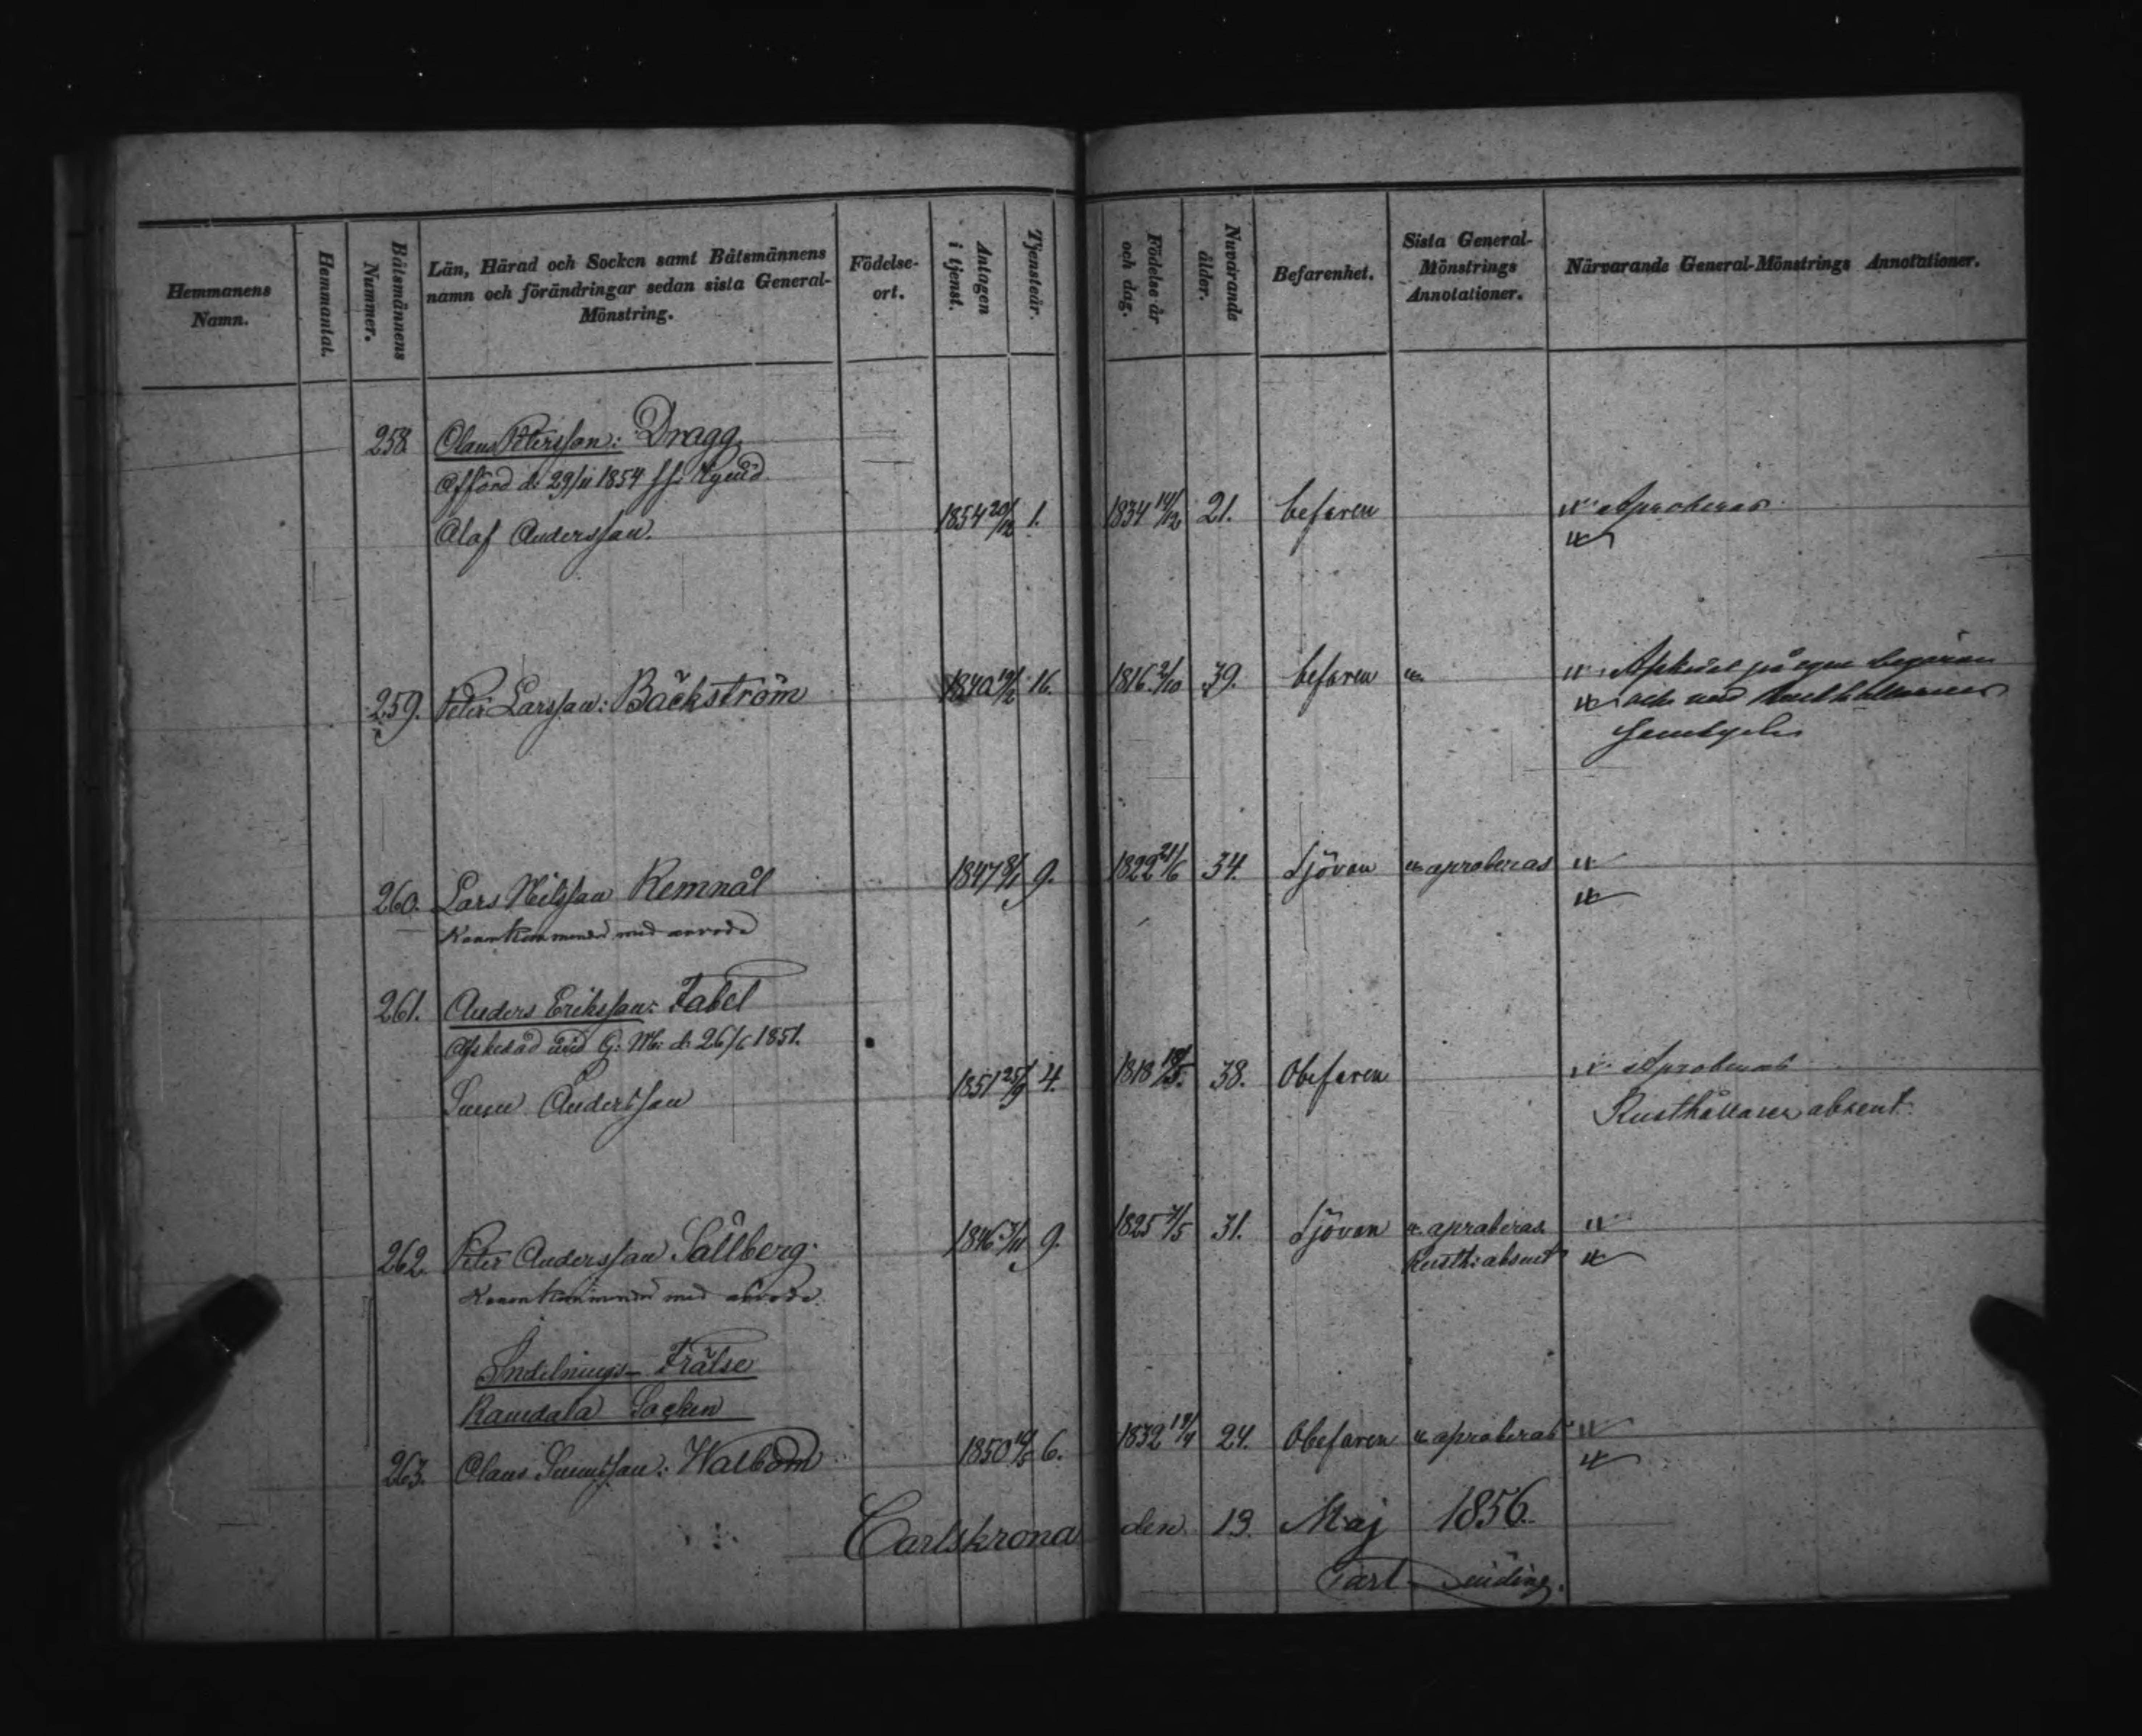 Hemmanens Namn.
Hemmantal.
Båtsmännens Nummer.
Län, Härad och Socken samt Båtsmännens
namn och förändringar sedan sista General-
Mönstring.
Födelse-
ort.
Antagen
i tjenst.
Tjensteår.
Födelse år
och dag.
Nuvarande
ålder.
Befarenhet.
Sista General-
Mönstrings
Annotationer.
Närvarande General-Mönstrings Annotationer.
258. Olaus Pettersson: Dragg
Afförd d. 29/11 1854
Olof Andersson. 1854 20/12 1. 1834 14/12 21. befaren Aproberas
259. Peter Larsson: Bäckström 1840 19/2 16. 1816 2/10 39. befaren Afskedas på egen begäran
och med Rusthållarens
samtycke
260. Lars Nilsson Remnål 1847 8/1 9. 1822 21/6 34. Sjövan aproberas
Kanonkommendör med arvode
261. Anders Eriksson: Fabel
Afskedad vid G: M: d. 26/6 1851.
Andersson 1851 25/9 4. 1818 18/5 38. Obefaren Aproberas
Rusthållaren absent.
262. Peter Andersson Sällberg 1846 3/11 9. 1825 7/5 31. Sjövan aproberas
Rusth: absent
Kanonkommendör med arvode.
Indelnings- Frälse
Ramdala Socken
263. Olaus 1850 6. 1832 19/4 24. Obefaren aproberas
Carlskrona den 13. Maj 1856.
Carl